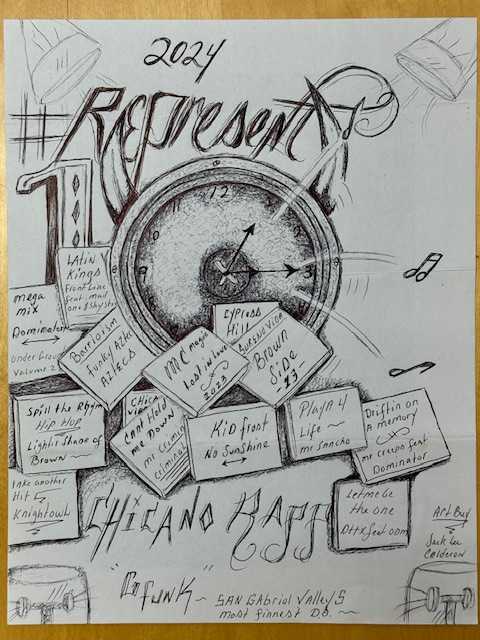 2024
Represent
#1
12
11
9
3
LATIN
Kings
Front Line
feat. mad
one & Shyster
mega
mix
Dominator
Under Ground
Volume. 2
Barriorism
funky Aztec
AZTECS
MC magic
Lost in Love
2023
CYPRESS
Hill
SUReno Vida
Brown
Side
13
Spill the Rhym
Hip Hop
Light Shade of
Brown
CHICA
Vida
Cant Hold
me Down
mr Criminal
Criminal
Kid frost
No Sunshine
Playn 4
Life
mr Sancho
Driftin on
A memory
mr creepo feat
Dominator
Take another
Hit
Knightowl
Let me be
the one
DTTX feat ODM
CHICANO RAPP
"
FUNK"
SAN Gabriol Valley,S
most finnest D.O.
Art Buy
Jack Lee
Calderon